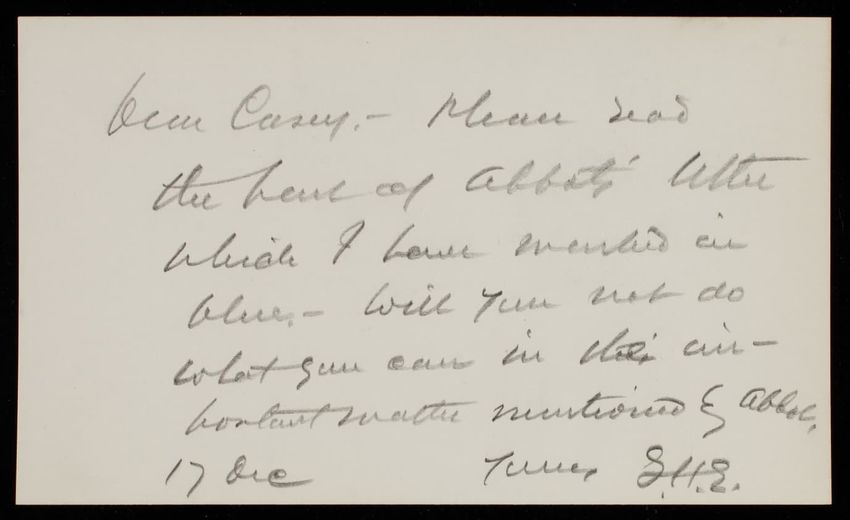 Dear Casey, - Please read
the part of Abbot's letter
which I have marked in
blue, - Will you not do
what you can in this im-
portant matter mentioned by Abbot,
17 Dec Yours, G.H.E.